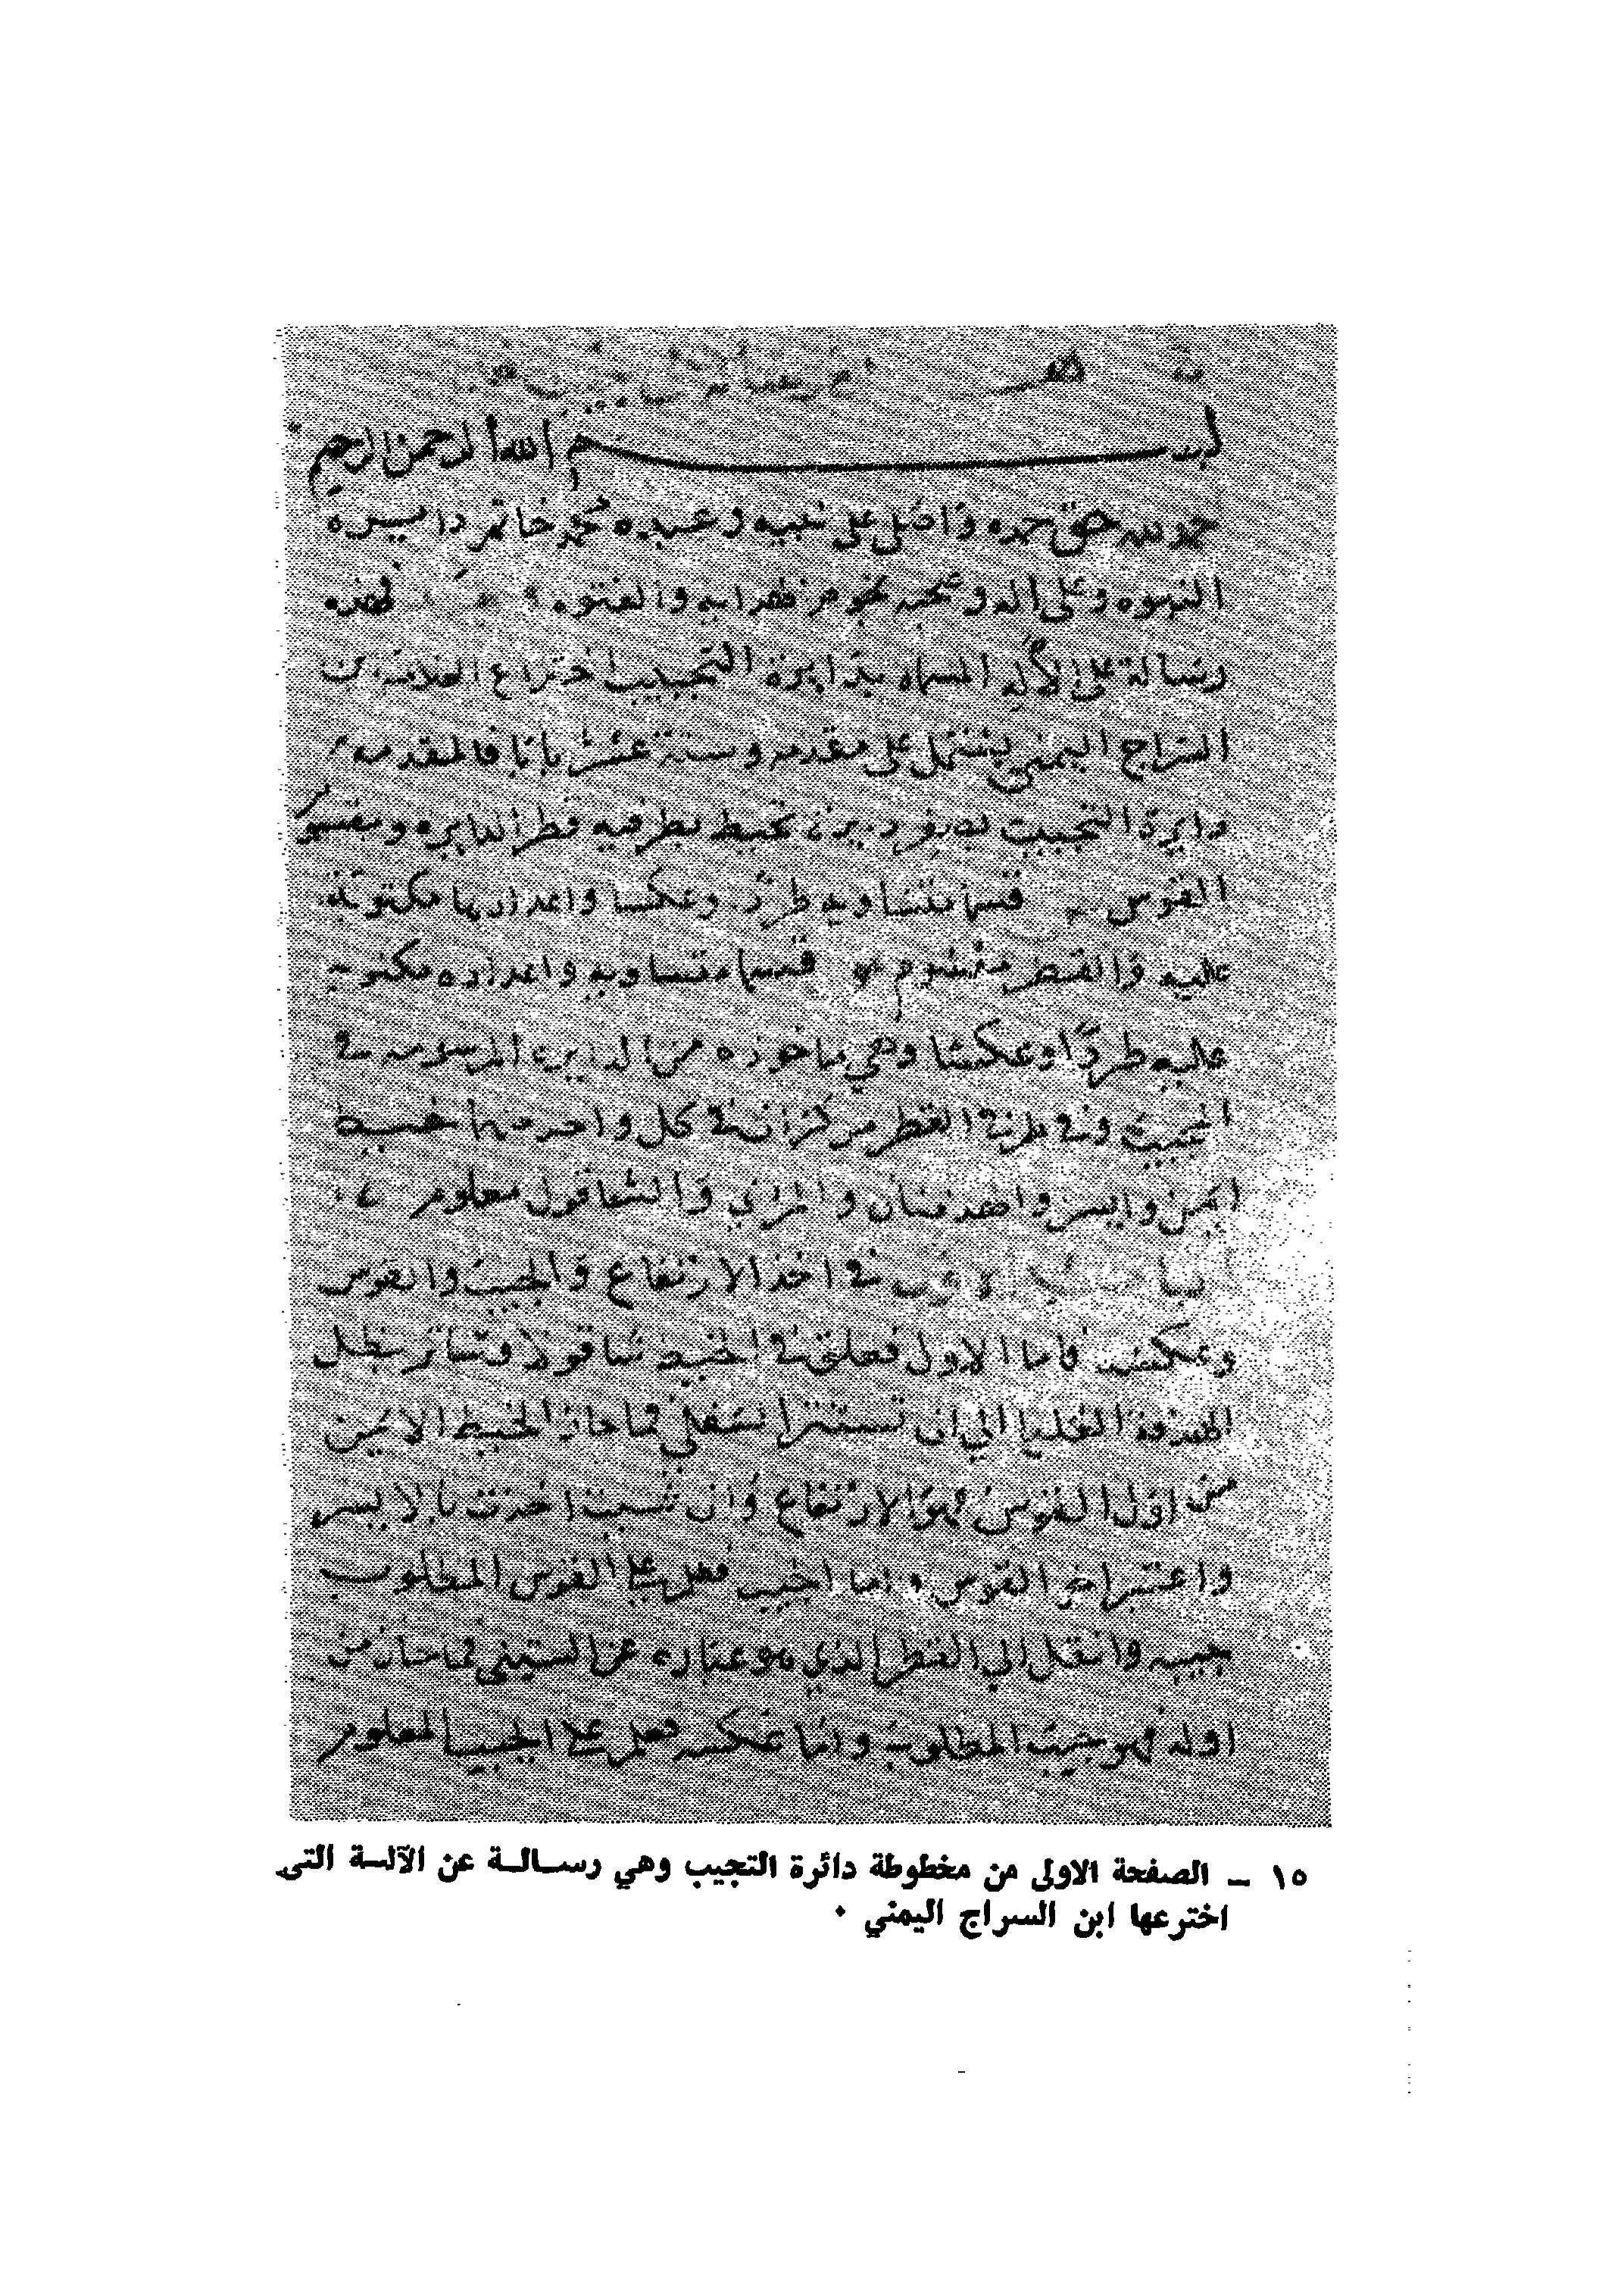 بسم الله الرحمن الرحيم
حمد الله حق حمده واصلي على نبيه وعبده محمد خاتم دايره
النبوه وعلى اله وصحبه نجوم والفتوه فهذه
رسالة على الآله المسماه بدايرة التجييب اختراع العلامه بن
السراج اليمني يشتمل على مقدمه وستة عشر بابا فالمقدمه
دايرة التجييب نصف دايرة تحيط بطرفيه قطر الدايره ومقسوم
القوس قسما متساويه طردا وعكسا واعدادها مكتوبة
عليه والقطر مقسوم قسما متساويه واعداده مكتوبه
عليه طردا وعكسا وهي ماخوذه من الدايره المرسومه في
الجيب وفي طرفي القطر مركزان في كل واحد منها خيط
ايمن وايسر والهدفتان والمري والشاقول معلوم
الباب الاول في اخذ الارتفاع والجيب والقوس
وعكسه فاما الاول فعلق في الخيط شاقولا وتساتر بظل
الهدفة العليا الى ان تستتر السفلى فما حاز الخيط الايمن
من اول القوس فهو الارتفاع وان شيت اخذت بالايسر
واعتبر اخر القوس واما الجيب فعلم على القوس المطلوب
جيبه وانقل الى القطر الذي هو عباره عن الستيني فما حاز من
اوله فهو جيب المطلوب واما عكسه فعلم على الجيب المعلوم
١٥ – الصفحة الاولى من مخطوطة دائرة التجيب وهي رسالة عن الآلة التي
اخترعها ابن السراج اليمني .